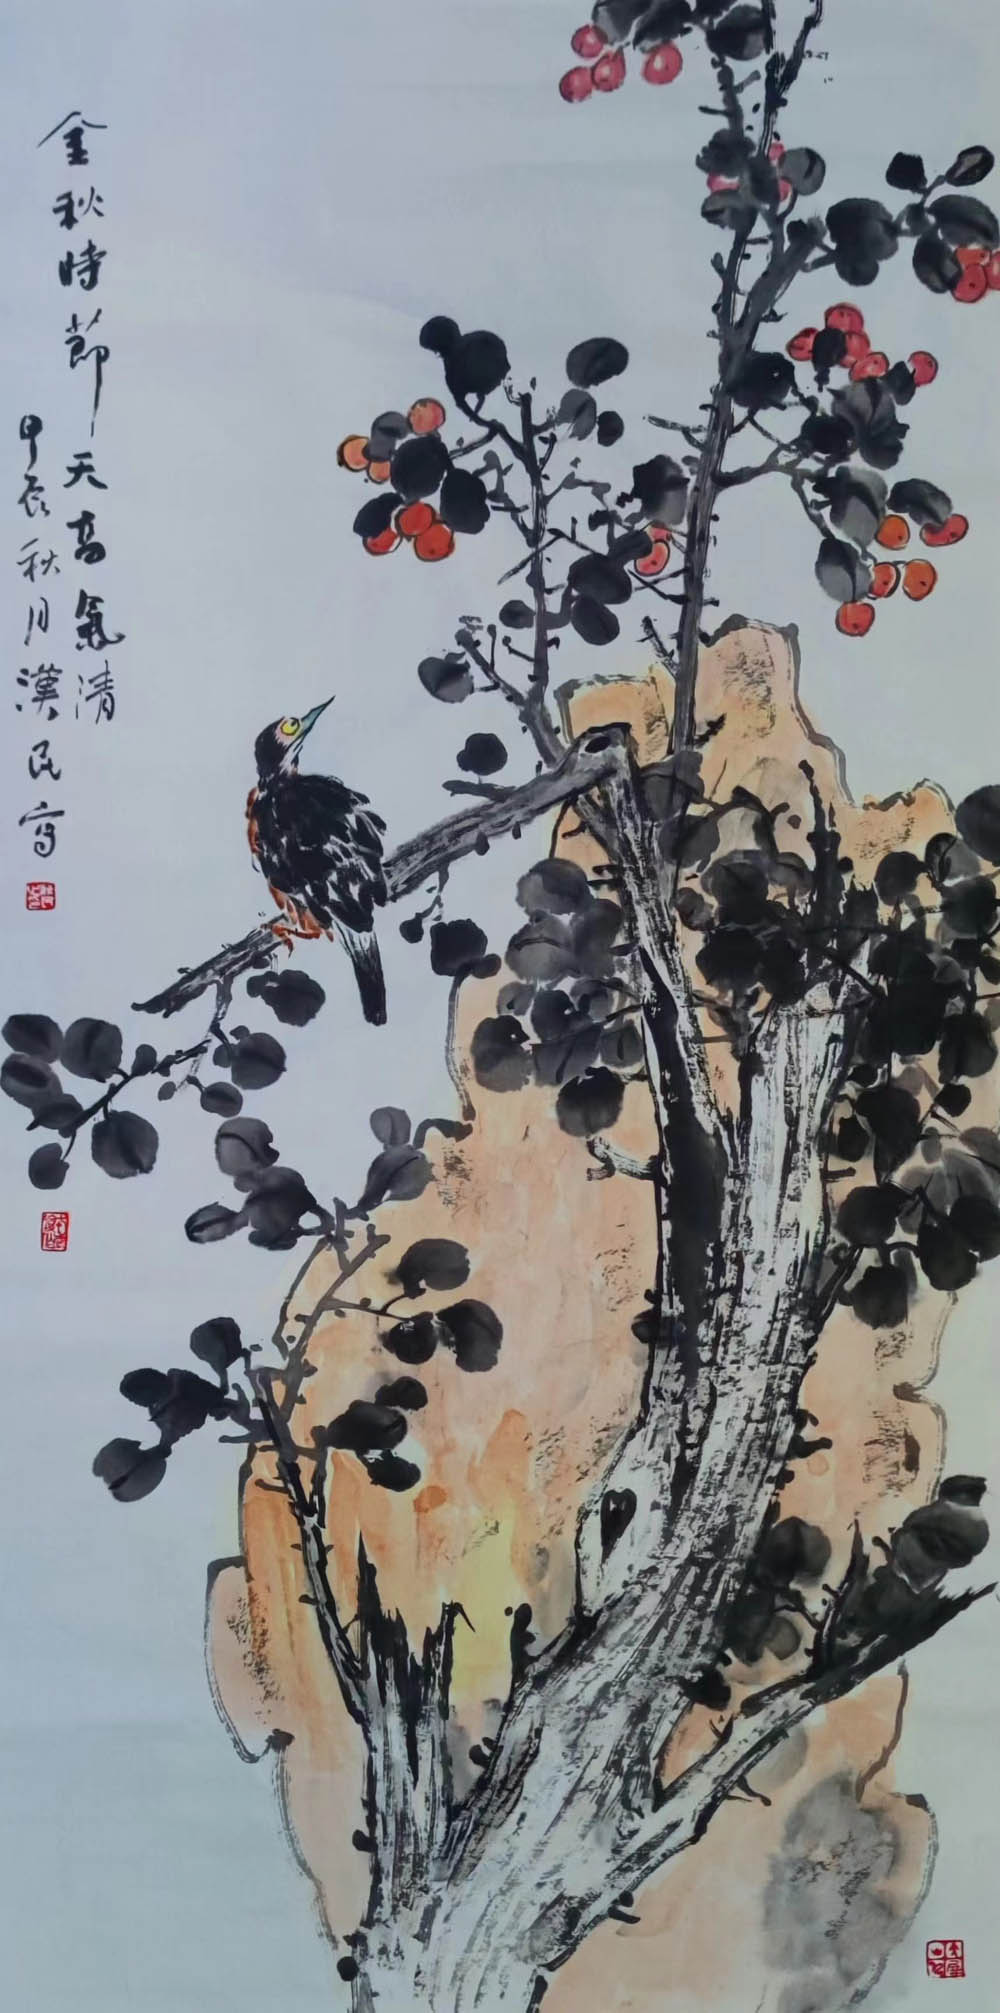 金秋時節天高氣清
甲辰秋月漢民寫